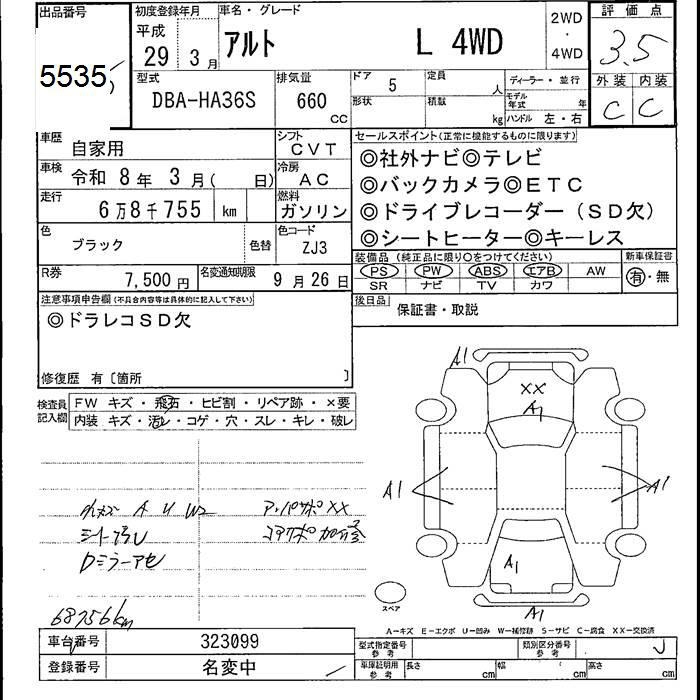 出品番号
5535
初度登録年月
平成
29 3月
車名・グレード
アルト L 4WD
2WD
・
4WD
評価点
3.5
外装 内装
C C
型式
DBA-HA36S
排気量
660
CC
ドア
5
定員
人
形状
積載
kg
ディーラー・並行
モデル年式 年
ハンドル 左・右
車歴
自家用
シフト
CVT
車検
令和 8年 3月( 日)
冷房
AC
走行
6万8千755 km
燃料
ガソリン
色
ブラック
色替
色コード
ZJ3
R券
7,500円
名変通知期限
9月26日
セールスポイント(正常に機能するものに限ります)
◎社外ナビ◎テレビ
◎バックカメラ◎ETC
◎ドライブレコーダー(SD欠)
◎シートヒーター◎キーレス
装備品(純正品に限り○をつけてください)
PS PW ABS エアB AW
SR ナビ TV カワ
新車保証書
有・無
後日品
保証書・取説
注意事項申告欄(不具合内容等は具体的に記入して下さい)
◎ドラレコSD欠
修復歴 有〔箇所 〕
検査員記入欄
FW キズ・飛石・ヒビ割・リペア跡・×要
内装 キズ・汚レ・コゲ・穴・スレ・キレ・破レ
A U W2
シート汚レ
Dミラーアセ
68756km
XX
A1
XX
A1
A1
A1
A1
A1
スペア
A-キズ E-エクボ U-凹み W-補修跡 S-サビ C-腐食 XX-交換済
車台番号
323099
登録番号
名変中
型式指定番号
参考
類別区分番号
参考
車庫証明用
参考
長さ cm
幅 cm
高さ cm